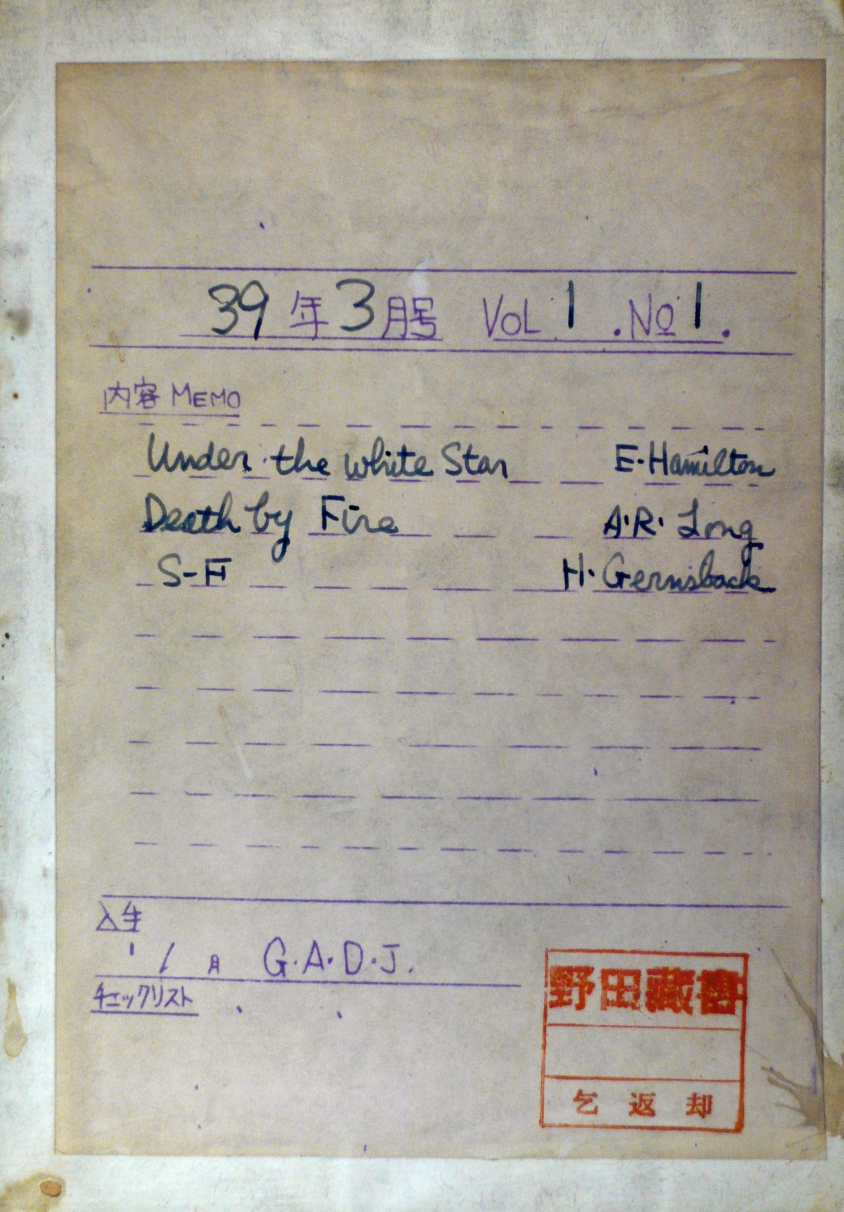 39年3月号 VOL 1 .No 1.
内容 MEMO
Under the white Star E.Hamilton
Death by Fire A.R. Long
S-F H.Gernsback
入手
' / 月 G.A.D.J.
チェックリスト
野田蔵書
乞返却